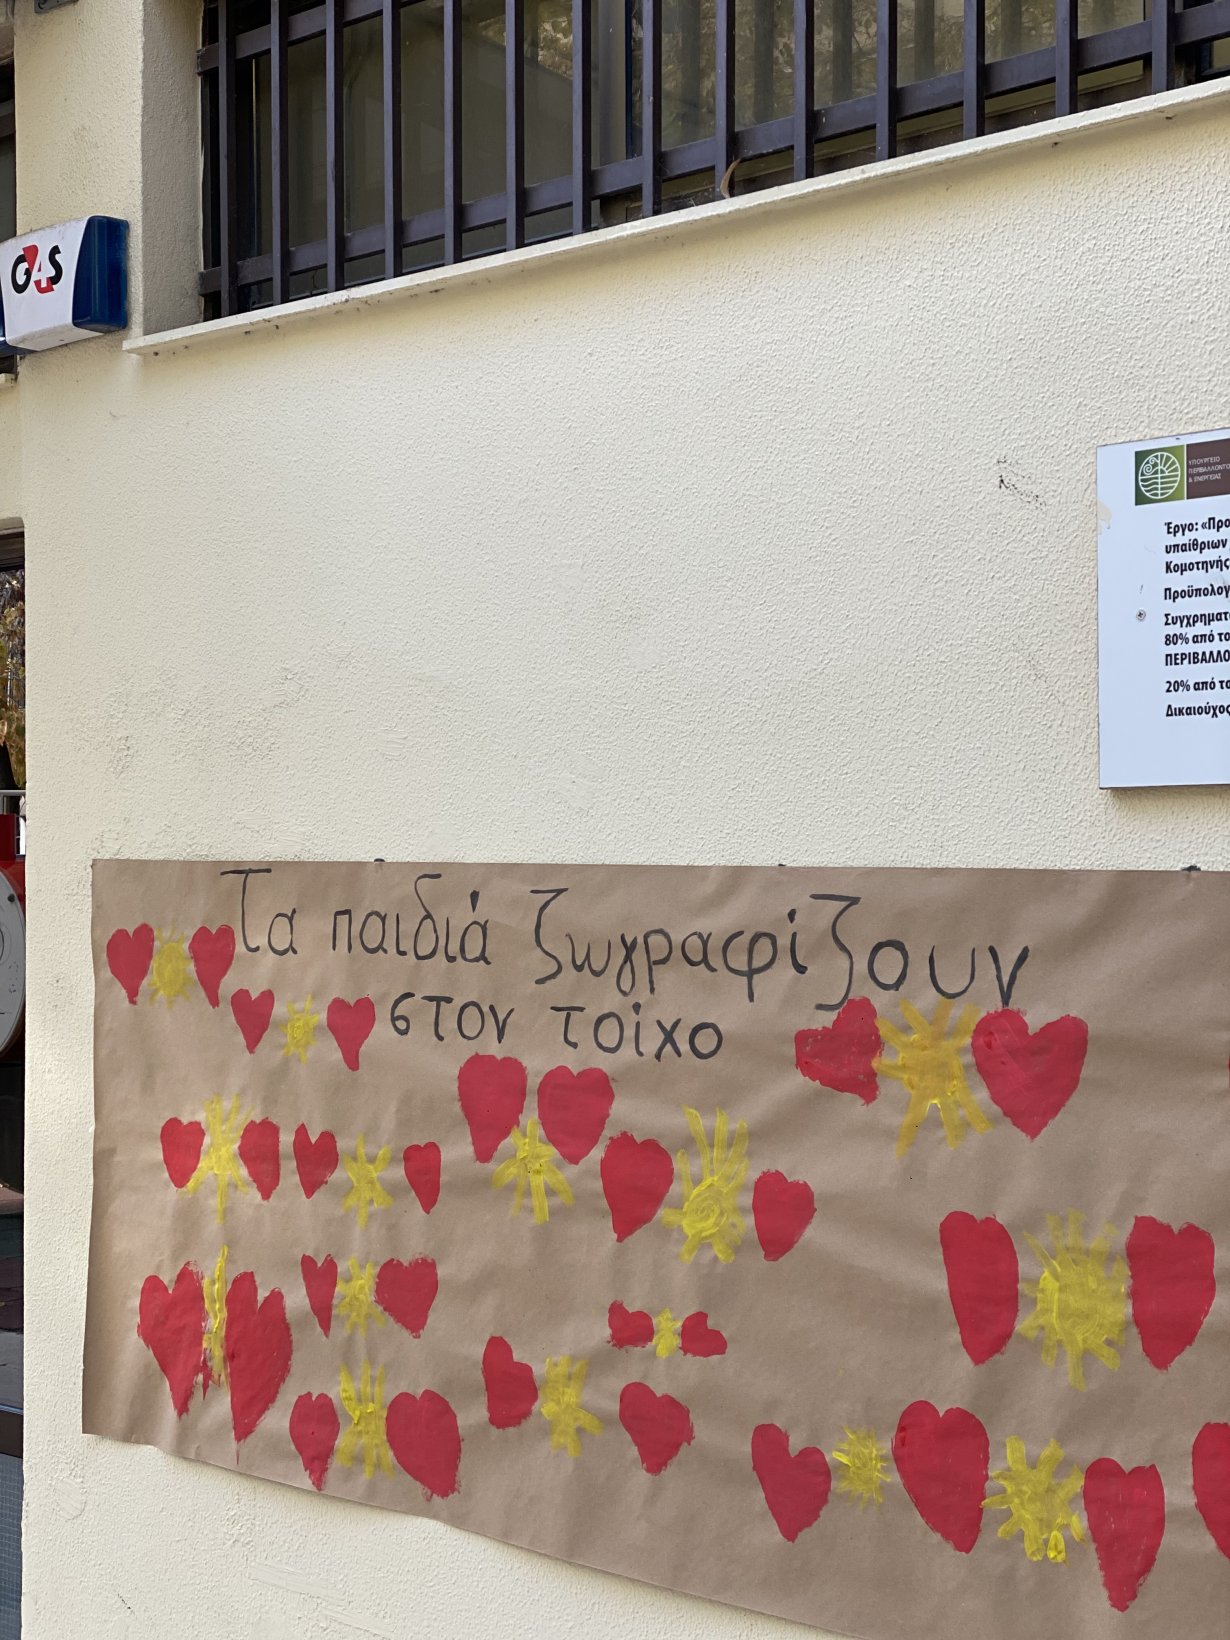 G4S
ΥΠΟΥΡΓΕΙΟ
ΠΕΡΙΒΑΛΛΟΝΤΟ
& ΕΝΕΡΓΕΙΑΣ
Έργο: «Προ
υπαίθριων
Κομοτηνής
Προϋπολογ
Συγχρηματ
80% από το
ΠΕΡΙΒΑΛΛΟ
20% από το
Δικαιούχος
Τα παιδιά ζωγραφίζουν
στον τοίχο